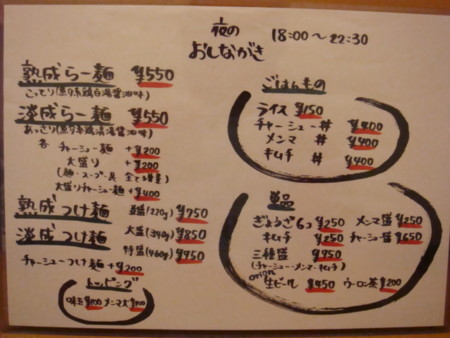 夜の
おしながき
18:00〜22:30
熟成らー麺 ¥550
こってり(魚介系鶏白湯醤油味)
淡成らー麺 ¥550
あっさり(魚介系鶏清湯醤油味)
各 チャーシュー麺 +¥200
大盛り +¥200
(麺・スープ・具 全て増量)
大盛りチャーシュー麺 +¥400
熟成つけ麺 並盛(220g) ¥750
淡成つけ麺 大盛(340g) ¥850
特盛(460g) ¥950
チャーシューつけ麺 +¥200
トッピング
味玉 ¥100 メンマ大 ¥100
ごはんもの
ライス ¥150
チャーシュー丼 ¥400
メンマ 丼 ¥400
キムチ 丼 ¥400
単品
ぎょうざ6コ ¥250 メンマ盛 ¥250
キムチ ¥250 チャーシュー盛 ¥650
三種盛 ¥950
(チャーシュー・メンマ・キムチ)
生ビール ¥450 ウーロン茶 ¥200